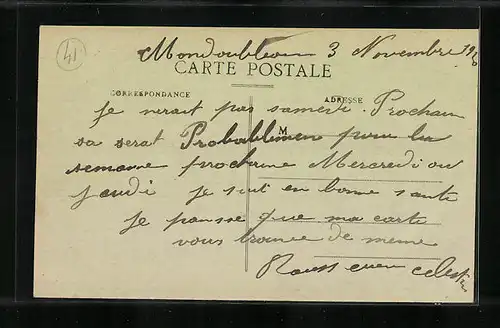 41
Mondoubleau 3 Novembre
CARTE POSTALE
CORRESPONDANCE ADRESSE
Je nerait pas samedi. Prochain
M
sa serat Probablemen pour la
semaine prochenne Mercredi ou
jeudi je suit en bonne sante
je pansse que ma carte
vous trouve de meme
Celest